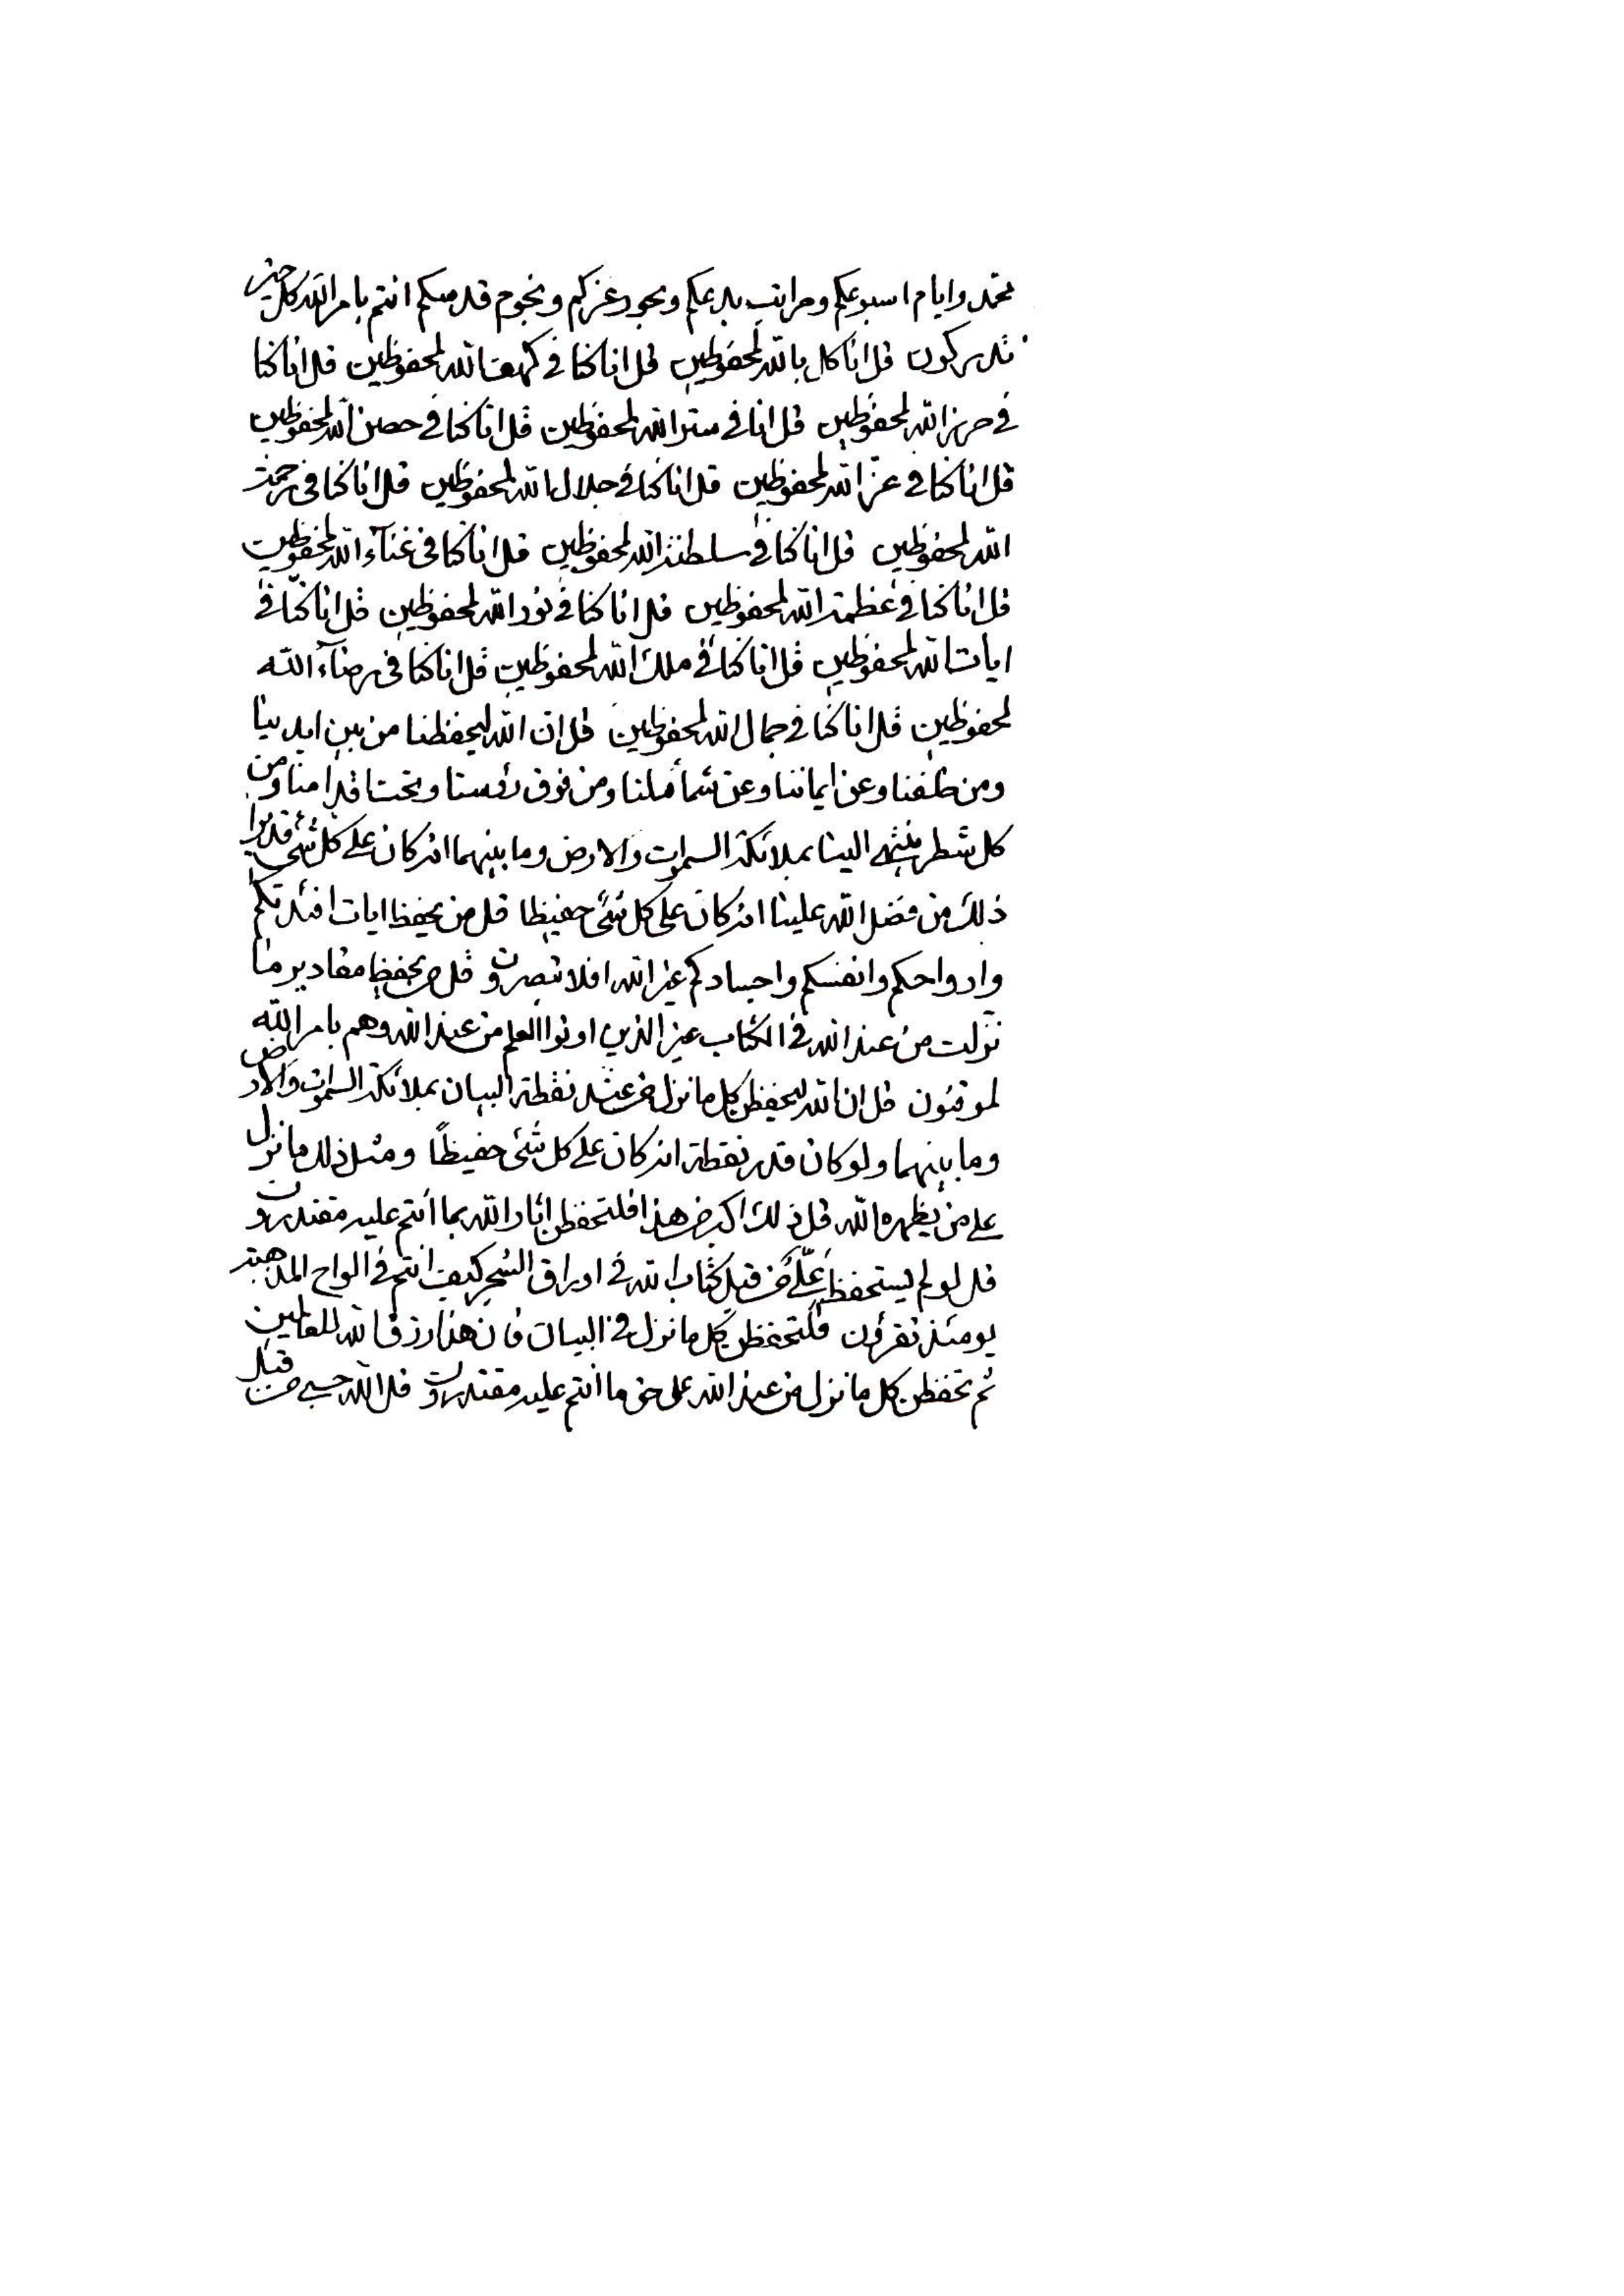 محمد وايام اسبوعكم ومراتب بدعكم وبحور عزكم ونجوم قدسكم انتم بامر الله كل حين
تدركون قل انا كل بالله لمحفوظين قل انا كنا في كهف الله لمحفوظين قل انا كنا
في حرز الله لمحفوظين قل انا في ستر الله لمحفوظين قل انا كنا في حصن الله لمحفوظين
قل انا كنا في عز الله لمحفوظين قل انا كنا في جلال الله لمحفوظين قل انا كنا في رحمة
الله لمحفوظين قل انا كنا في سلطنة الله لمحفوظين قل انا كنا في غنآء الله لمحفوظين
قل انا كنا في عظمة الله لمحفوظين قل انا كنا في نور الله لمحفوظين قل انا كنا في
ايات الله لمحفوظين قل انا كنا في ملك الله لمحفوظين قل انا كنا في رضآء الله
لمحفوظين قل انا كنا في جمال الله لمحفوظين قل ان الله ليحفظنا من بين ايدينا
ومن خلفنا وعن ايماننا وعن شمائلنا ومن فوق رؤسنا وتحت اقدامنا ومن
كل شطر ينتهي الينا بملائكة السموات والارض وما بينهما انه كان على كل شئ قديرا
ذلك من فضل الله علينا انه كان على كل شئ حفيظا قل من يحفظ ايات افئدتكم
وارواحكم وانفسكم واجسادكم غير الله افلا تبصرون قل من يحفظ مقادير ما
نزلت من عند الله في الكتاب غير الذين اوتوا العلم من عند الله وهم بامر الله
لموقنون قل ان الله ليحفظن كل ما نزل من عند نقطة البيان بملائكة السموات والارض
وما بينهما ولو كان قدر نقطة انه كان على كل شئ حفيظاً ومثل ذلك ما نزل
على من يظهره الله قل ذلك اكبر من هذا فلتحفظن اثار الله بما انتم عليه مقتدرون
قل لو لم يستحفظ علّي من قبل كتاب الله في اوراق الشجر كيف انتم في الواح المذهبة
يومئذ تقرؤن فلتحفظن كل ما نزل في البيان فان هذا رزق الله للعالمين
ثم تحفظن كل ما نزل من عند الله على حق ما انتم عليه مقتدرون قل الله حسبي من قبل